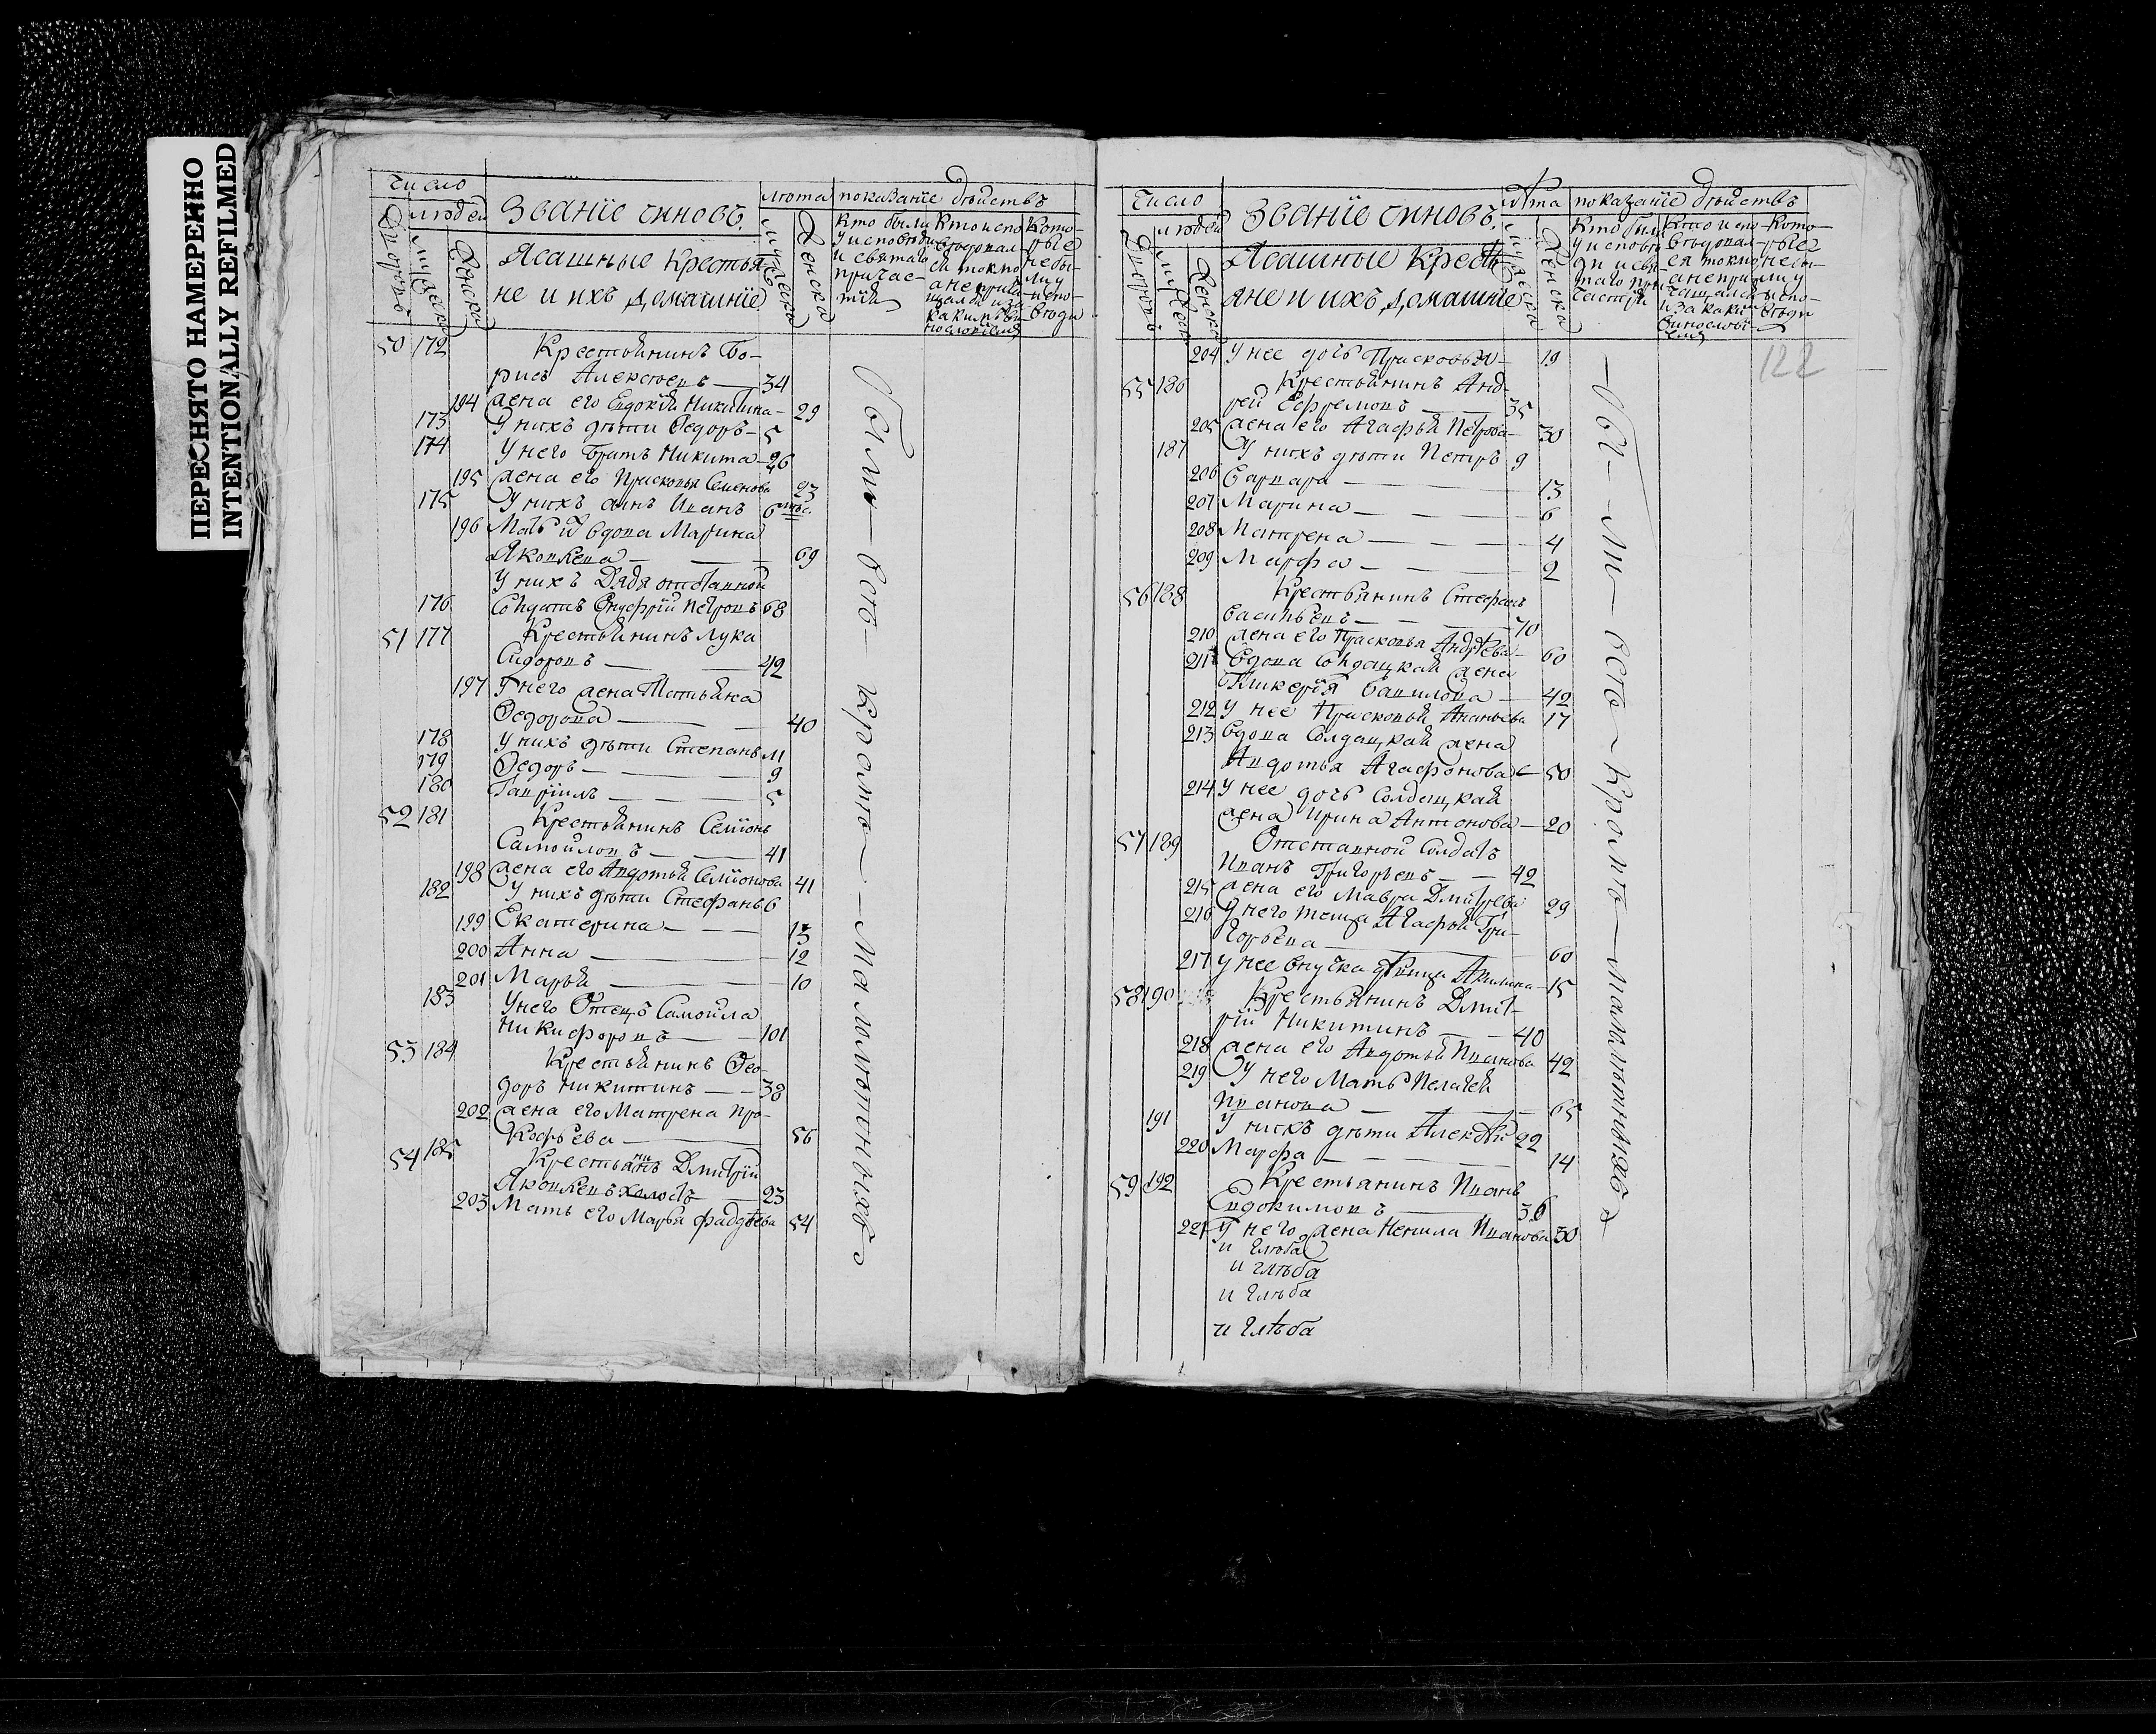 ПЕРЕСНЯТО НАМЕРЕННО
INTENTIONALLY REFILMED
число
людей
Дворовъ
мужеска
женска
Званїе чиновъ.
Ясашные Крестья-
не и ихъ домашнїе
лѣта
мужеска
женска
показанїе дѣйствъ
Кто были
у исповѣди
и святаго
причас-
тїя
Кто испо
вѣдовал-
ся токмо
а не прича
щался и за
какимъ ви
нословїемъ
Кото-
рые
не бы-
ли у
испо-
вѣди
50 172 Крестьянинъ Бо-
рисъ Алексѣевъ — 34
194 жена его Евдокїя Никитина — 29
173 У нихъ дѣти Ѳедоръ — 5
174 У него братъ Никита — 26
195 жена его Прасковья Семенова 23
175 У нихъ сынъ Иванъ 6 мѣс.
196 Мать их вдова Марина
Яковлева — 69
У нихъ Дядя отставной
176 Солдатъ Онуфрїй Петровъ 68
51 177 Крестьянинъ Лука
Сидоровъ — 42
197 У него жена Татьяна
Ѳедорова — 40
178 У нихъ дѣти Степанъ 11
179 Ѳедоръ — 9
180 Гаврїилъ — 5
52 181 Крестьянинъ Семїонъ
Самойловъ — 41
198 жена его Авдотья Семїонова 41
182 У нихъ дѣти Стефанъ 6
199 Екатерина — 13
200 Анна — 12
201 Марья — 10
183 У него Отецъ Самойла
Никифоровъ — 101
53 184 Крестьянинъ Ѳео-
доръ Никитинъ — 38
202 жена его Матрена Про-
кофьева — 56
54 185 Крестьянинъ Дмитрїй
Яковлевъ холостъ — 23
203 Мать его Марья Фадѣева 54
Были — всѣ — кромѣ — малолѣтнихъ
число
людей
Дворовъ
мужеска
женска
Званїе чиновъ.
Ясашные Кресть
яне и ихъ домашнїе
Лѣта
мужеска
женска
показанїе дѣйствъ
Кто были
у исповѣ
ди и свя-
таго при
частїя
Кто испо-
вѣдовал-
ся токмо
а не при
чащался
и за каки
винословї-
емъ
Кото-
рые
не бы-
ли у
испо-
вѣди
122
204 У нее дочь Прасковья — 19
55 186 Крестьянинъ Анд-
рей Ефремовъ — 35
205 жена его Агафья Петрова — 30
187 У нихъ дѣти Петръ 9
206 Варвара — 13
207 Марина — 6
208 Матрена — 4
209 Марфа — 2
56 188 Крестьянинъ Стефанъ
Васильевъ — 70
210 жена его Прасковья Андрѣева — 60
211 Вдова Солдацкая жена
Гликерїя Вавилова — 42
212 У нее Прасковья Ананьева 17
213 Вдова Солдацкая жена
Авдотья Агафонова — 50
214 У нее дочь Солдацкая
жена Ирина Антонова — 20
57 189 Отставной Солдатъ
Иванъ Григорьевъ — 42
215 жена его Мавра Дмитрева 29
216 У него теща Агафья Гри-
горьева — 60
217 У нее внучка дѣвица Акилина — 15
58 190 Крестьянинъ Дмит-
рїй Никитинъ — 40
218 жена его Авдотья Иванова 42
219 У него Мать Пелагея
Иванова — 65
191 У нихъ дѣти Алексѣй 22
220 Марфа — 14
59 192 Крестьянинъ Иванъ
Евдокимовъ — 36
221 У него жена Ненила Иванова 30
и Глѣба
и глѣба
и Глѣба
и Глѣба
— Бы — ли — всѣ — кромѣ — малолѣтнихъ